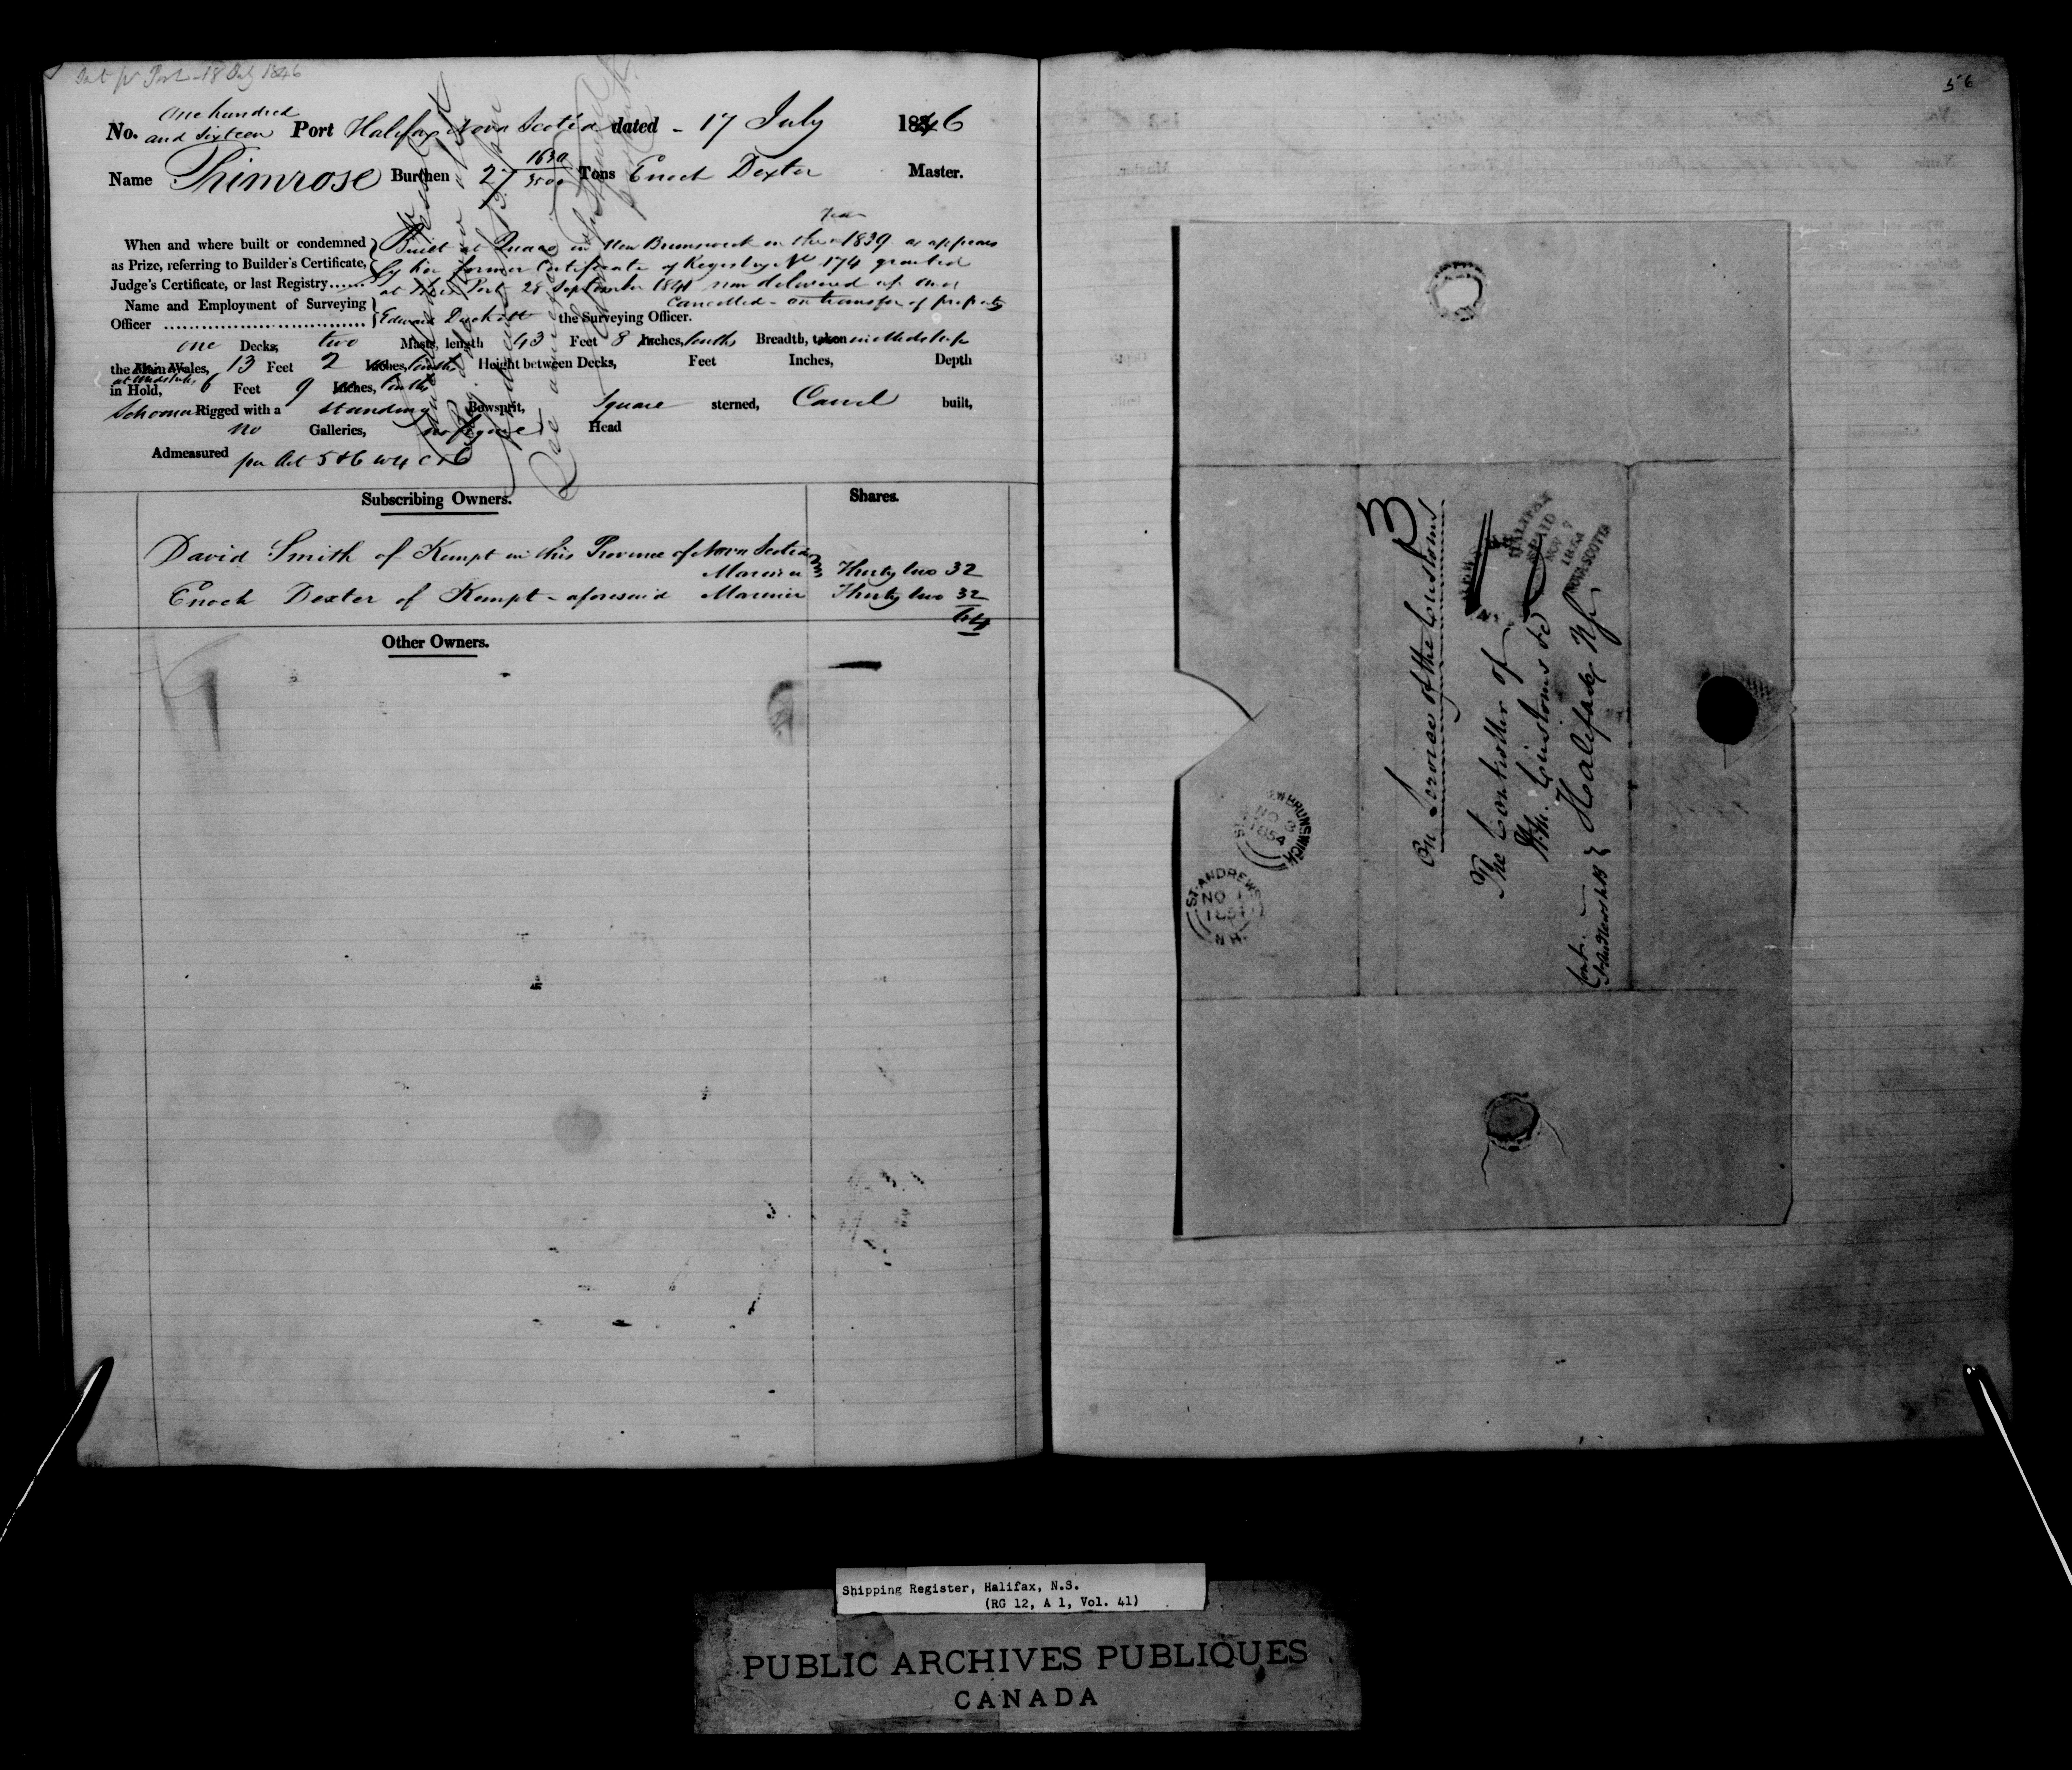 18 July 1846
No. One hundred and Sixteen Port Halifax Nova Scotia dated - 17 July 1846
Name Primrose Burthen 27 1630/3500 Tons Enoch Dexter Master.
When and where built or condemned as Prize, referring to Builder's Certificate, Judge's Certificate, or last Registry......
Built at Quaco in New Brunswick in the year 1839 as appears
by her former Certificate of Registry No 174 granted
at this Port 28 September 1841 now delivered up and
Cancelled - on transfer of property
Name and Employment of Surveying Officer
Edward Duckett the Surveying Officer.
one Decks, two Masts, length 43 Feet 8 Inches, tenths Breadth, taken midships
the Main Wales, 13 Feet 2 Inches, tenths Height between Decks, Feet Inches, Depth
in Hold, at Midships 6 Feet 9 Inches, tenths
Schooner Rigged with a Standing Bowsprit, Square sterned, Carvel built,
no Galleries, no figure Head
Admeasured per Act 5 & 6 W 4 C 56
Subscribing Owners. Shares.
David Smith of Kempt in this Province of Nova Scotia
Mariner Thirty two 32
Enoch Dexter of Kempt - aforesaid Mariner Thirty two 32
64
Other Owners.
56
3
On Service of the Customs
The Controller of
H.M. Customs &c
Halifax NS
HALIFAX
PAID
NOV 7
1854
NOVA-SCOTIA
NEW BRUNSWICK
NO 3
1854
ST. ANDREWS
NO 1
1854
N.B.
Shipping Register, Halifax, N.S.
(RG 12, A 1, Vol. 41)
PUBLIC ARCHIVES PUBLIQUES
CANADA